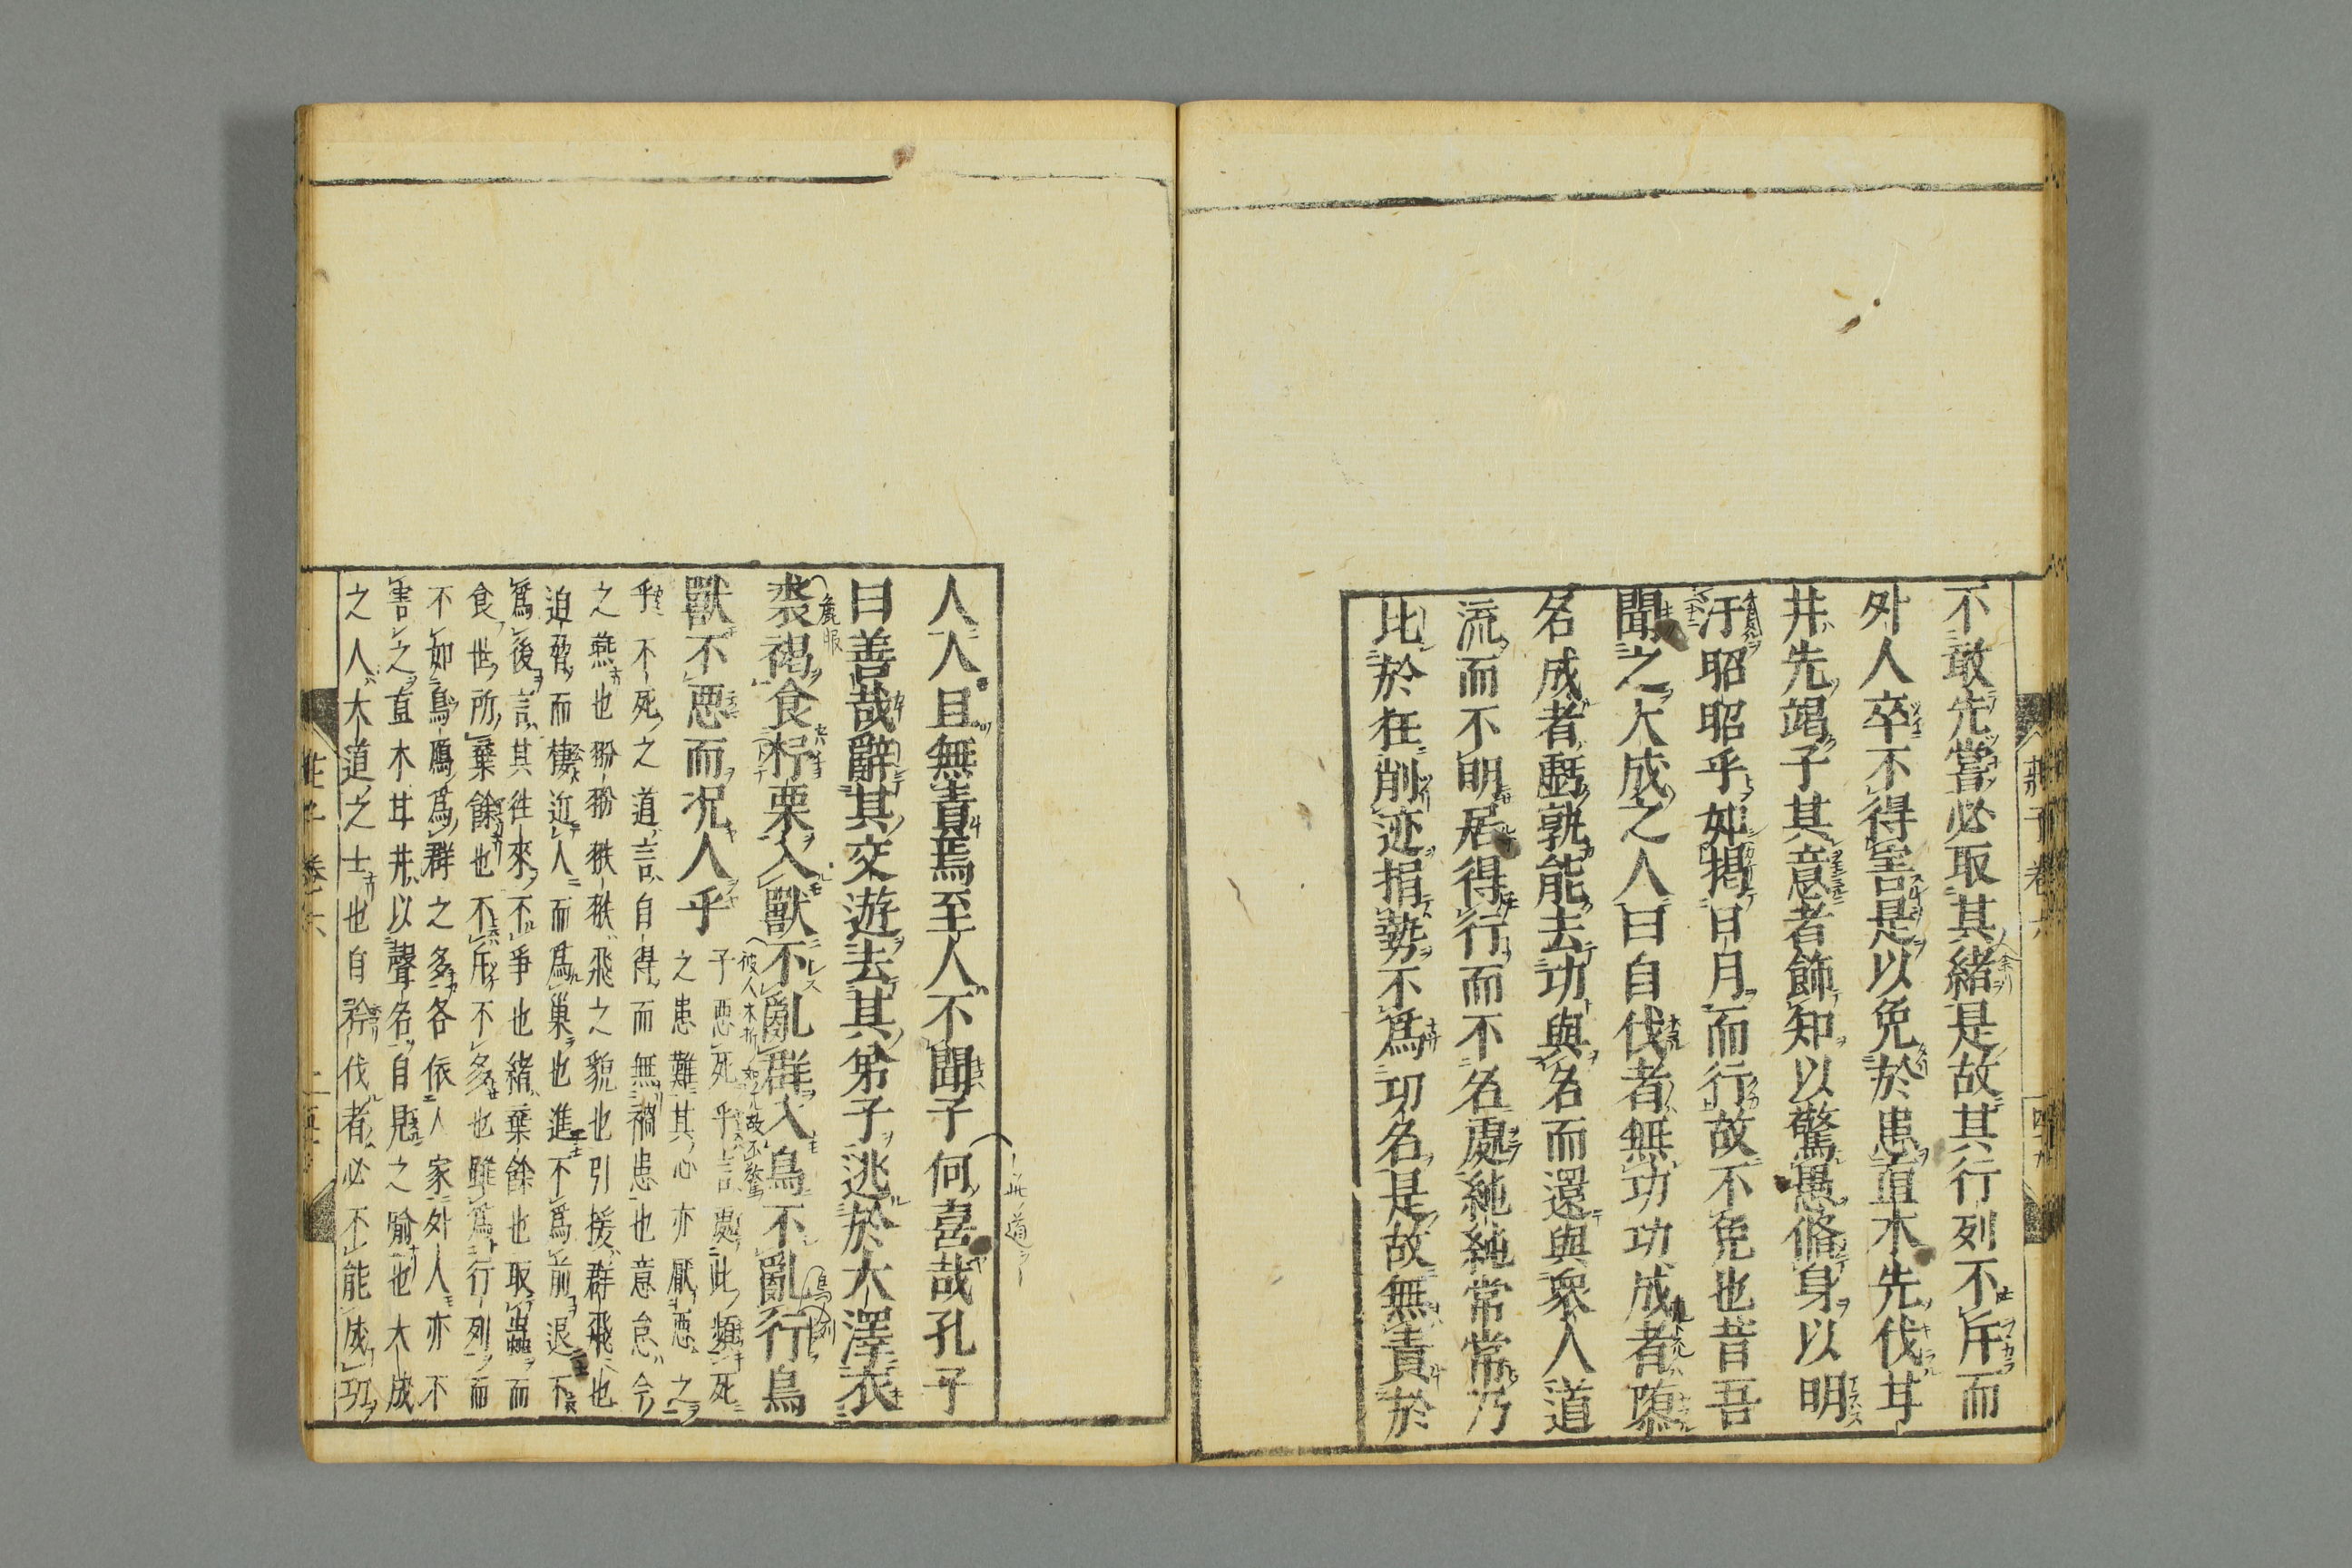 莊子卷六
不敢先嘗必取其緒是故其行列不斥而
外人卒不得害是以免於患直木先伐甘
井先竭子其意者飾知以驚愚脩身以明
汙昭昭乎如揭日月而行故不免也昔吾
聞之大成之人曰自伐者無功功成者墮
名成者虧孰能去功與名而還與衆人道
流而不明居得行而不名處純純常常乃
比於狂削迹捐勢不爲功名是故無責於
人人且無責焉至人不聞子何喜哉孔子
曰善哉辭其交遊去其弟子逃於大澤衣
裘褐食杼栗入獸不亂群入鳥不亂行鳥
獸不惡而况人乎
子惡死乎言處此類死
之患難其心亦厭惡之
乎不死之道言自得而無禍患也意怠今
之燕也翂翂翐翐飛之貌也引援群飛也
迫脅而棲近人而爲巢也進不爲前退不
爲後言其往來不爭也緒棄餘也取蟲而
食世所棄餘也不斥不多也雖爲行列而
不如鳥鴈爲群之多各依人家外人亦不
害之直木甘井以聲名自見之喻也大成
之人大道之士也自矜伐者必不能成功
莊子卷六